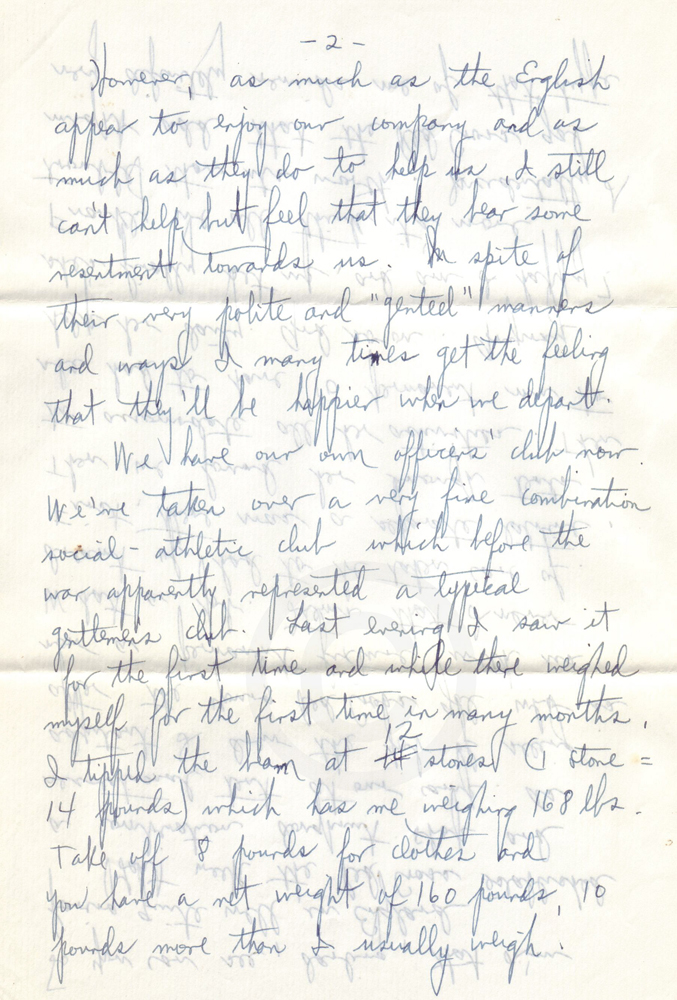 -2-
However, as much as the English
appear to enjoy our company and as
much as they do to help us, I still
can't help but feel that they bear some
resentment towards us. In spite of
their very polite and "genteel" manners
and ways I many times get the feeling
that they'll be happier when we depart.
We have our own officers' club now.
We've taken over a very fine combination
social-athletic club which before the
war apparently represented a typical
gentlemen's club. Last evening I saw it
for the first time and while there weighed
myself for the first time in many months.
I tipped the beam at 12 stones (1 stone =
14 pounds) which has me weighing 168 lbs.
Take off 8 pounds for clothes and
you have a net weight of 160 pounds, 10
pounds more than I usually weigh.